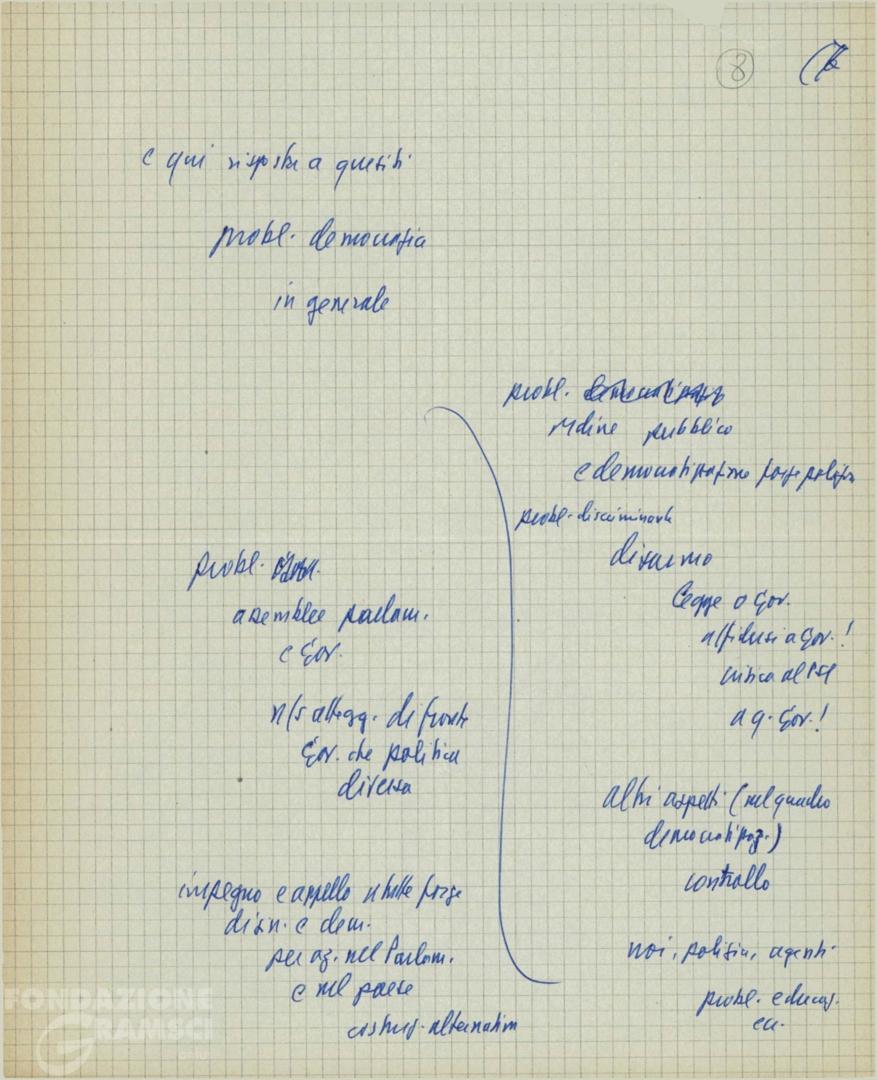 8
e qui risposta a quesiti
probl. democrazia
in generale
probl.
ordine pubblico
e democratizzazione forze polizia
probl. discriminante
disarmo
Legge o Gov.
affidarsi a Gov.!
critica al PSI
a q. Gov.!
altri aspetti (nel quadro
democratizzaz.)
controllo
noi, polizia, agenti
probl. educaz.
ecc.
probl.
assemblee parlam.
e Gov.
n/s attegg. di fronte
Gov. che politica
diversa
impegno e appello a tutte forze
di sin. e dem.
per az. nel Parlam.
e nel paese
costruz. alternativa
FONDAZIONE
GRAMSCI